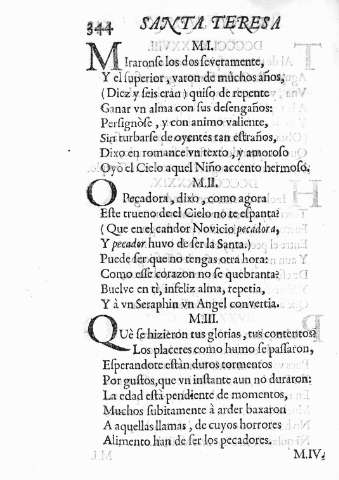 344 SANTA TERESA
M.I.
Miraronse los dos severamente,
Y el superior, varon de muchos años,
(Diez y seis eran) quiso de repente
Ganar vn alma con sus desengaños:
Persignòse, y con animo valiente,
Sin turbarse de oyentes tan estraños,
Dixo en romance vn texto, y amoroso
Oyò el Cielo aquel Niño accento hermoso.
M.II.
O Pecadora, dixo, como agora
Este trueno de el Cielo no te espanta?
(Que en el candor Novicio pecadora,
Y pecador huvo de ser la Santa.)
Puede ser que no tengas otra hora:
Como esse corazon no se quebranta?
Buelve en tì, infeliz alma, repetia,
Y à vn Seraphin vn Angel convertia.
M.III.
Què se hizieron tus glorias, tus contentos?
Los placeres como humo se passaron,
Esperandote estàn duros tormentos
Por gustos, que vn instante aun no duraron:
La edad està pendiente de momentos,
Muchos subitamente à arder baxaron
A aquellas llamas, de cuyos horrores
Alimento han de ser los pecadores.
M.IV.